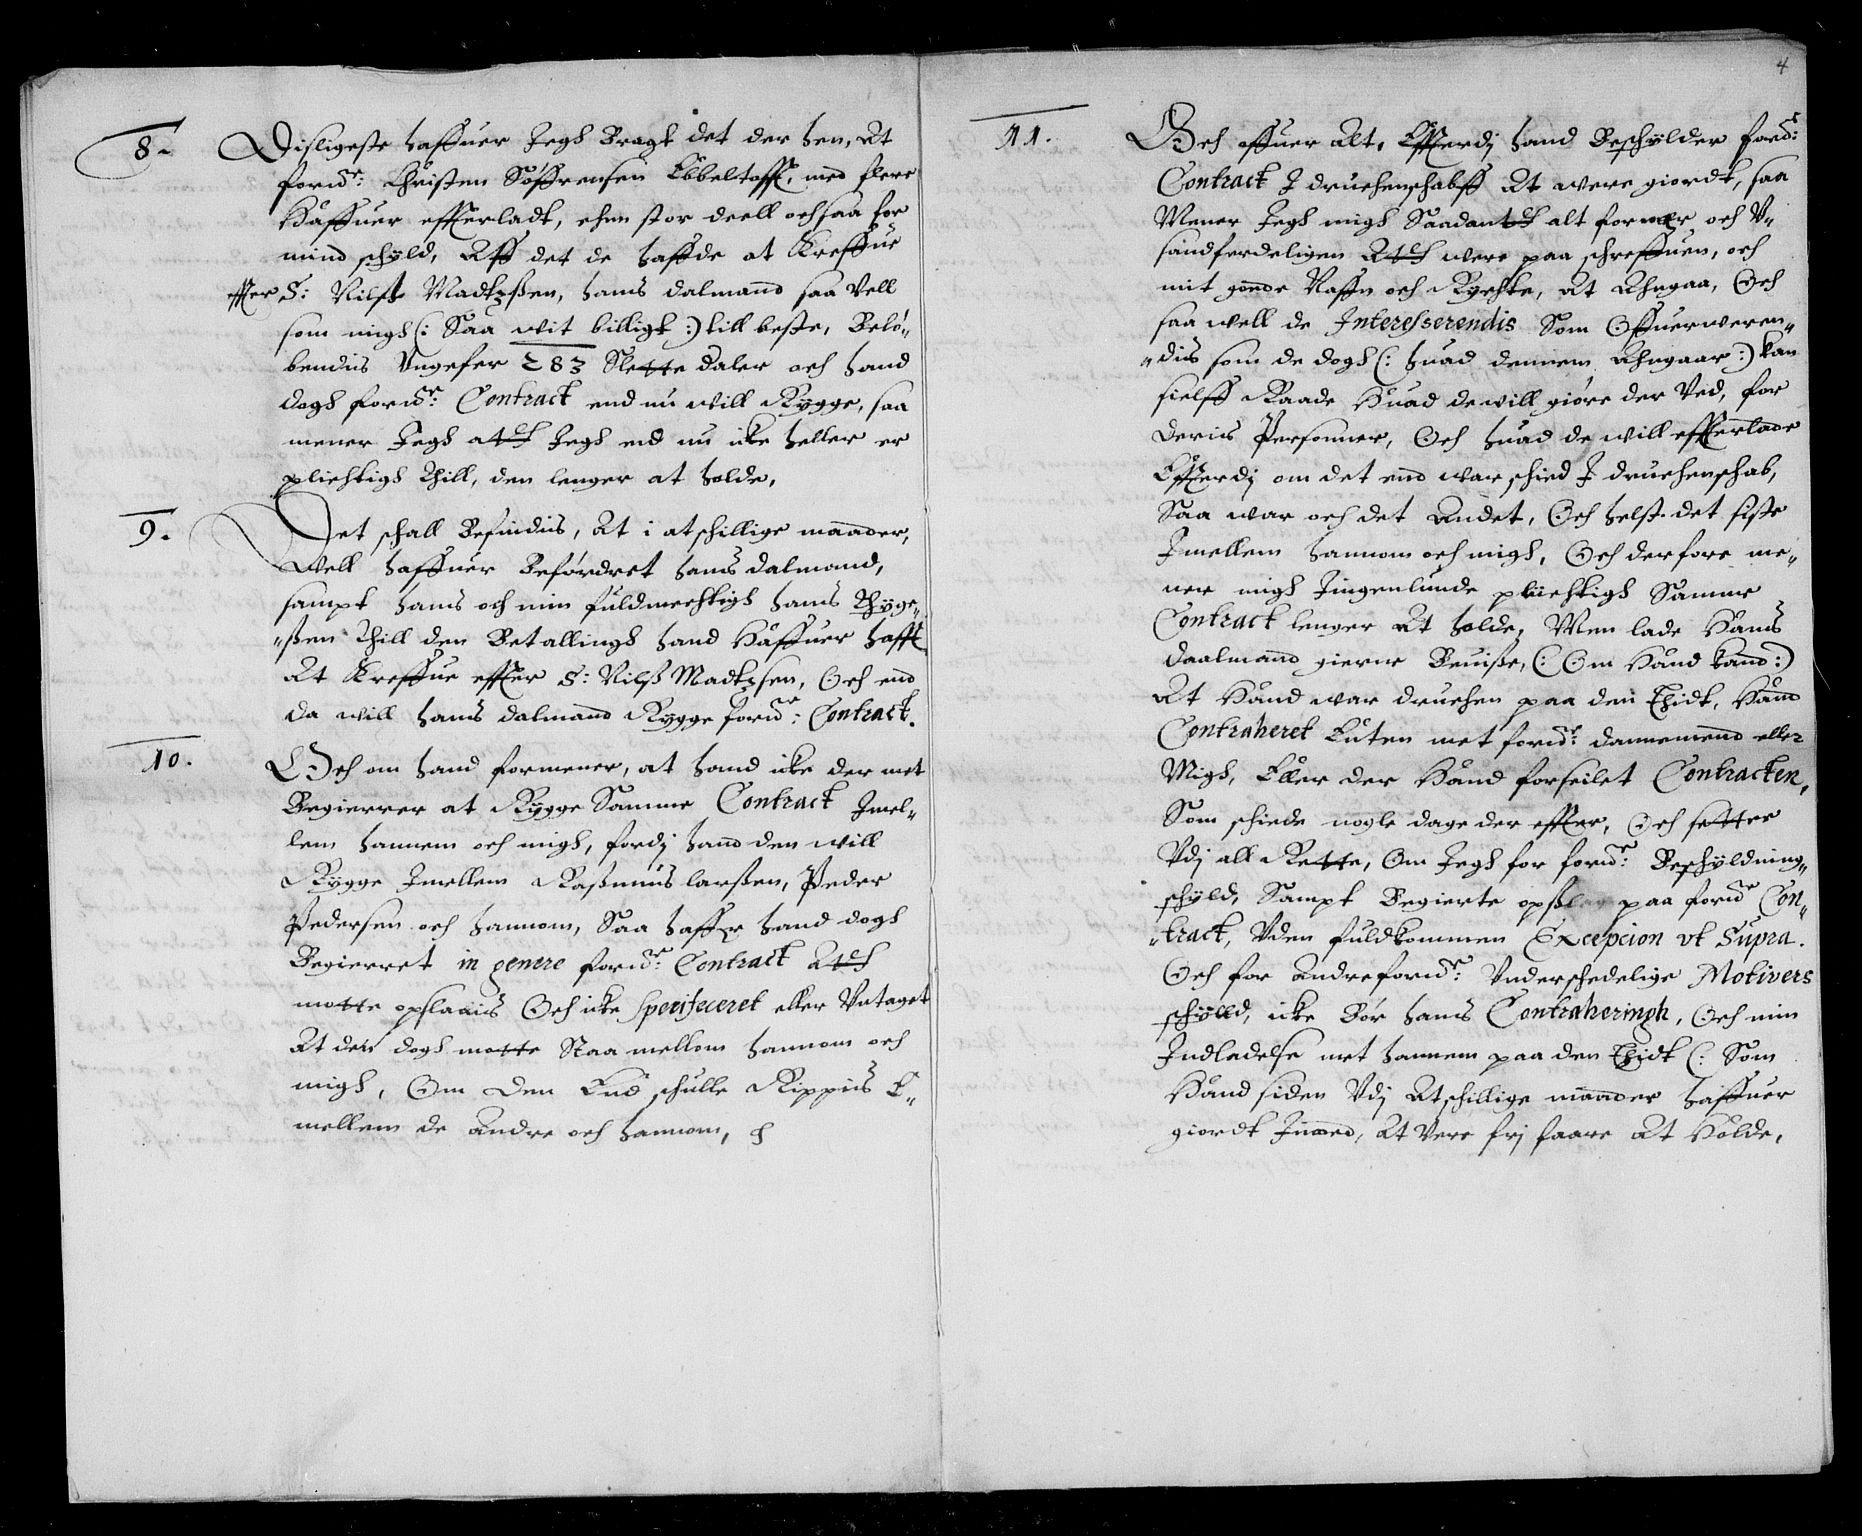 8.
Disligeste haffuer Jegh Bragt det der hen, At
forn.de: Christen Söffrensen Ebbeltofft, med flere
Haffuer efterladt, ehn stor deell och saa for
mind schyld, Aff det de haffde at Kreffue
effter S: Nilss Madtzßen, hans dalmand saa Vell
som migh (: Saa wit billigt :) till beste, Belö-
bendis Vngefer 283 Slette daler och hand
dogh forn.de: Contract end nu will Rygge, saa
mener Jegh att Jegh end nu icke heller er
pliechtigh Thill, den lenger at holde,
9.
Det schall Befindis, At i atschillige maaneder,
Well haffuer Befördret hans dalmand,
sampt hans och min fuldmechtigh hans Thyge-
ßen Thill den Betallingh hand Haffuer hafft
At Kreffue effter S: Nilß Madtzsen, Och end
da will hans dalmand Rygge forn.de: Contract.
10.
Och om hand formener, at hand icke der met
Begierrer at Rygge Samme Contract Jmel-
lem hannem och migh, fordj hand den will
Rygge Jmellem Raßmus larßen, Peder
Pedersen och hannom, Saa haffr hand dogh
Begierret in genere forn.de: Contract att
motte opslaais Och icke Specificeret eller Vntaget
At den dogh motte Staa mellom hannom och
migh, Om den End schulle Rippis E-
mellem de Andre och hannom,
4
11.
Och offuer alt, Effterdj hand Beschylder forn.de:
Contract J druchenschabff At were giordt, saa
Mener Jegh migh Saadant alt for nær och V-
sandferdeligen Att were paa schreffuen, och
mit gonde Naffn och Rychte, At Ahngaa, Och
saa well de Interesserendis Som Offuerweren-
dis som de dogh (: huad dennem Ahngaar :) kan
sielff Raade Huad de will giöre der Ved, for
deris Personner, Och huad de will effterlade
Effterdj om det end war schied J druchenschab,
Saa war och det Andet, Och helst det siste
Jmellem hannom och migh, Och derfore me-
ner migh Jngenlunde pliichtigh Samme
Contract lenger At holde, Men lade Hans
daalmand gierne Beuiße, (: Om Hand kand :)
At Hand war druchen paa den Thidt, Hand
Contraheret Enten met forn.de: dannemend eller
Migh, Eller der Hand forseilet Contracten,
Som schiede nogle dage der effter, Och setter
Vdj all Rette, Om Jegh for forn.de: Beschyldning-
schyld, Sampt Begierte opslag paa forn.de Con-
tract, Vden fuldkommen Excepcion vt Supra.
Och for Andre forn.de: Vnderschedelige Motivers
schylld, icke Bör hans Contraheringh, Och min
Jndladelse met hannem paa den Thidt (: Som
Hand siden Vdj Atschillige maaneder haffuer
giordt Jmod, At Vere frj faare At Holde,